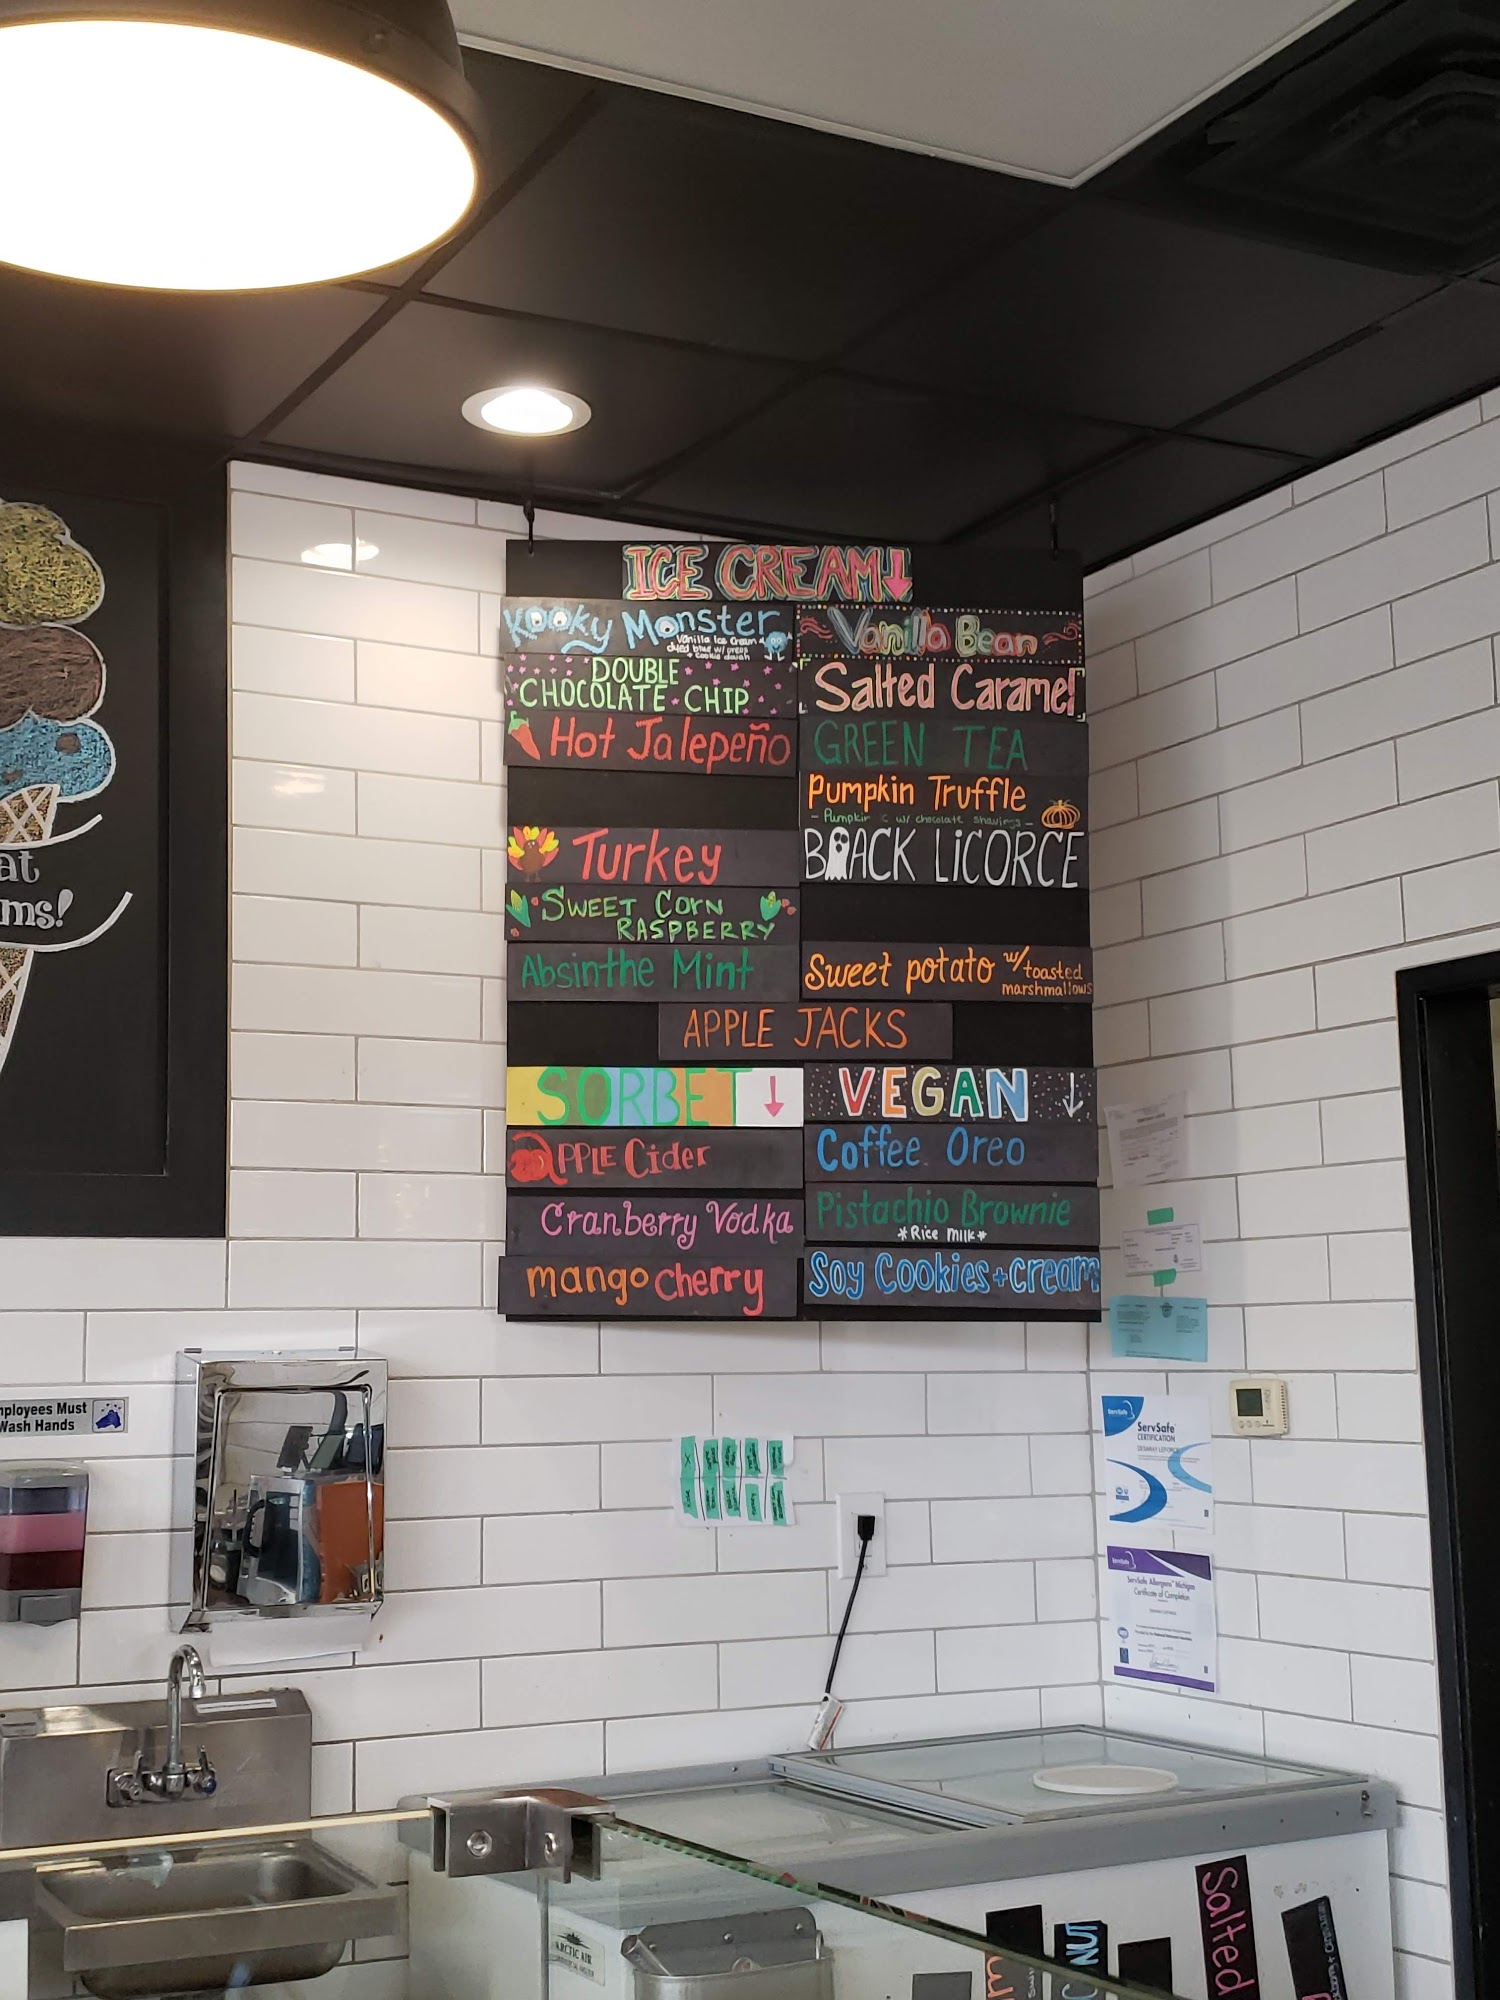 ICE CREAM
Kooky Monster
Vanilla Ice Cream
dyed blue w/ oreos
+ cookie dough
Vanilla Bean
DOUBLE
CHOCOLATE CHIP
Salted Caramel
Hot Jalepeño
GREEN TEA
Pumpkin Truffle
- Pumpkin w/ chocolate shavings -
Turkey
BLACK LiCORCE
SWEET CORN
RASPBERRY
Absinthe Mint
Sweet potato w/ toasted
marshmallows
APPLE JACKS
SORBET
VEGAN
APPLE Cider
Coffee Oreo
Cranberry Vodka
Pistachio Brownie
*Rice Milk*
mango cherry
Soy Cookies + cream
at
ms!
mployees Must
Wash Hands
ServSafe
CERTIFICATION
ServSafe Allergens Michigan
Certificate of Completion
ARCTIC AIR
Salted
NUT